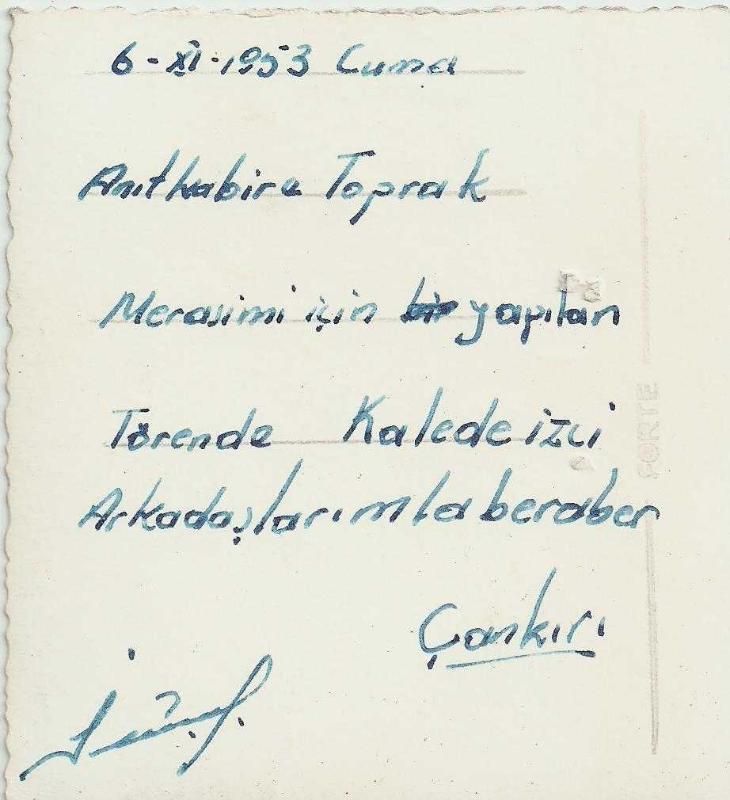 6-XI-1953 Cuma
Anıtkabire Toprak
Merasimi için bir yapılan
Törende Kalede izci
Arkadaşlarımla beraber
Çankırı
FORTE